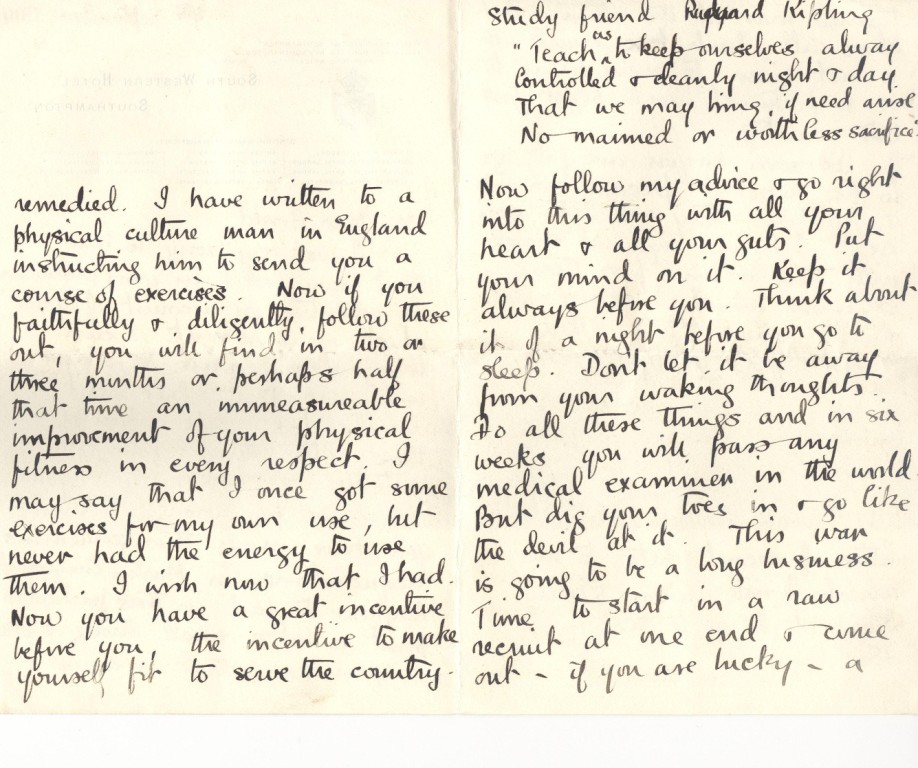 remedied. I have written to a
physical culture man in England
instructing him to send you a
course of exercises. Now if you
faithfully & diligently, follow these
out, you will find in two or
three months or perhaps half
that time an immeasureable
improvement of your physical
fitness in every respect. I
may say that I once got some
exercises for my own use, but
never had the energy to use
them. I wish now that I had.
Now you have a great incentive
before you, the incentive to make
yourself fit to serve the country.
Study friend Rudyard Kipling
"Teach us to keep ourselves alway
Controlled & cleanly night & day
That we may bring, if need arise
No maimed or worthless sacrifice."
Now follow my advice & go right
into this thing with all your
heart & all your guts. Put
your mind on it. Keep it
always before you. Think about
it of a night before you go to
sleep. Don't let it be away
from your waking thoughts.
Do all these things and in six
weeks you will pass any
medical examiner in the world
But dig your toes in & go like
the devil at it. This war
is going to be a long business.
Time to start in a raw
recruit at one end & come
out - if you are lucky - a
SOUTH WESTERN HOTEL
SOUTHAMPTON